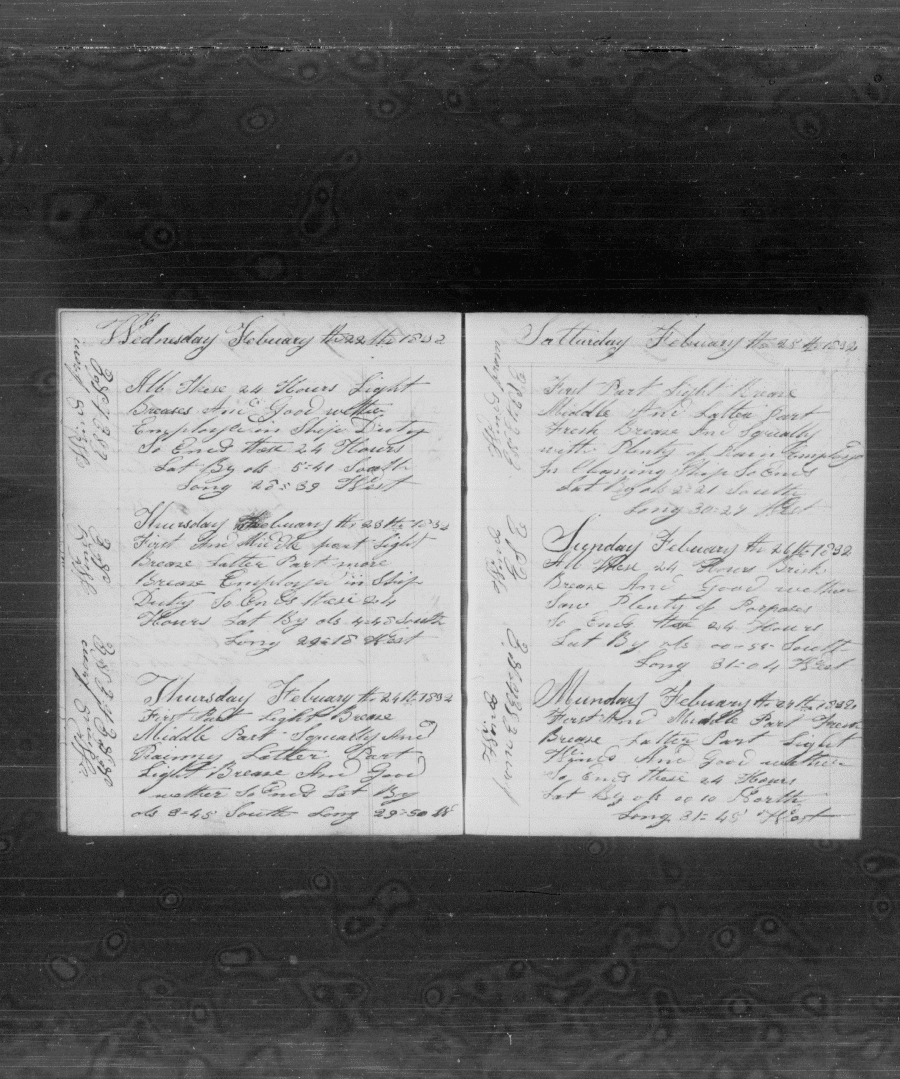 Wednesday Febuary the 22th 1832
All these 24 Hours Light
Breases And Good wether
Employed in Ships Duty
So Ends these 24 Hours
Lat By obs 5-41 South
Long 28=39 West
Thursday Febuary the 23th 1832
First And Middle part Light
Brease Latter Part more
Brease Employed in Ship
Duty So Ends these 24
Hours Lat By obs 4-48 South
Long 29=18 West
Thursday Febuary the 24th 1832
First Part Light Brease
Middle Part Squally And
Rainney Latter Part
Light Brease And Good
wether So Ends Lat By
obs 3-45 South Long 29=50 W
Winds from
Winds
Winds from
Satturday Febuary the 25th 1832
First Part Light Brease
Middle And Latter Part
Fresh Brease And Squally
with Plenty of Rain Employed
In Cleaning Ship So Ends
Lat By obs 2=21 South
Long 30=24 West
Sunday Febuary the 26th 1832
All these 24 Hours Brisk
Brease And Good wether
Saw Plenty of Porposes
So Ends these 24 Hours
Lat By obs 00=55 South
Long 31=04 West
Munday Febuary the 27th 1832
First And Middle Part Fresh
Brease Latter Part Light
Winds And Good wether
So Ends these 24 Hours
Lat By ob 00 10 North
Long 31=48 West
Winds from
Winds
Winds
from